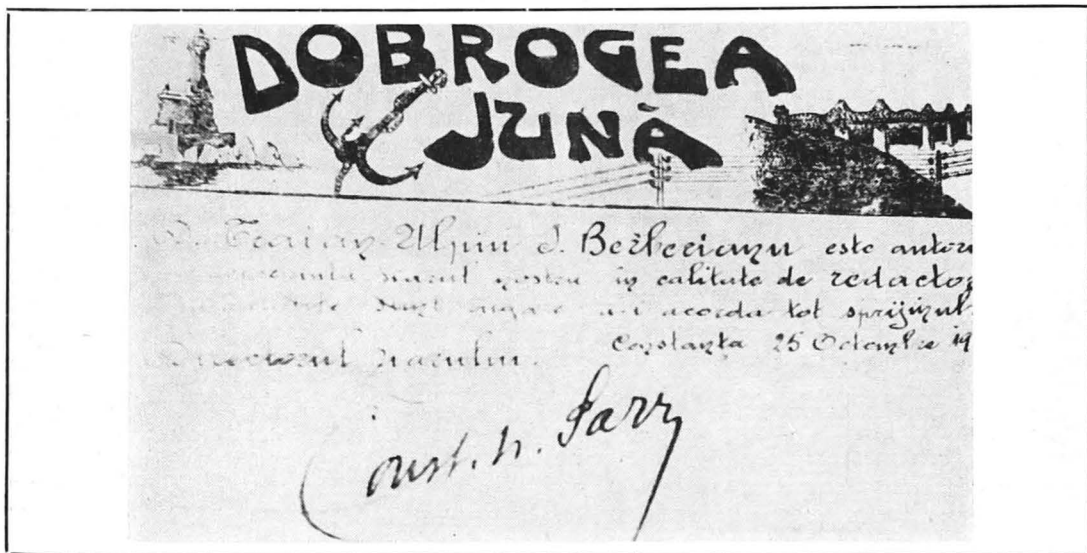 DOBROGEA
JUNĂ
Traian Ulpiu I. Berberianu este autori
ziarul nostru in calitate de redactor
sunt rugate a-i acorda tot sprijinul
Constanța 25 Octombrie 19
Directorul ziarului.
Const. N. Sarry